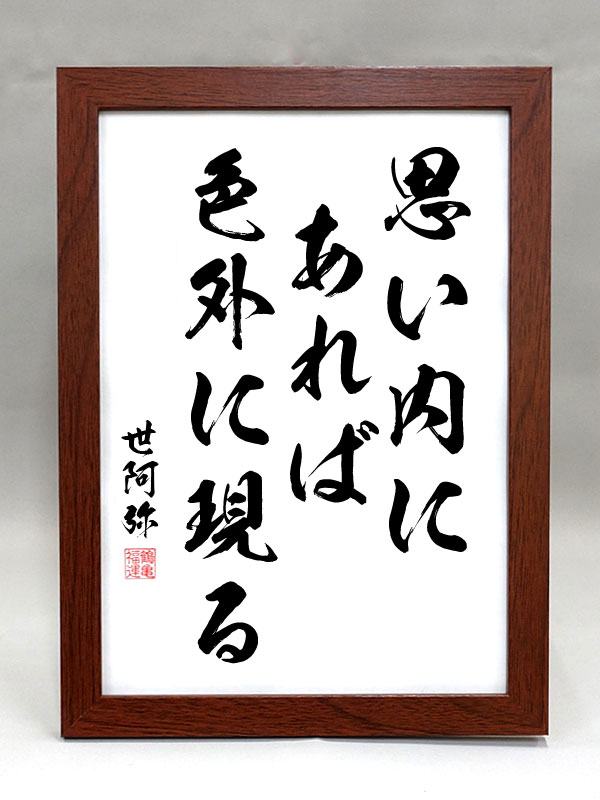 思い内に
あれば
色外に現る
世阿弥
鶴亀
福運